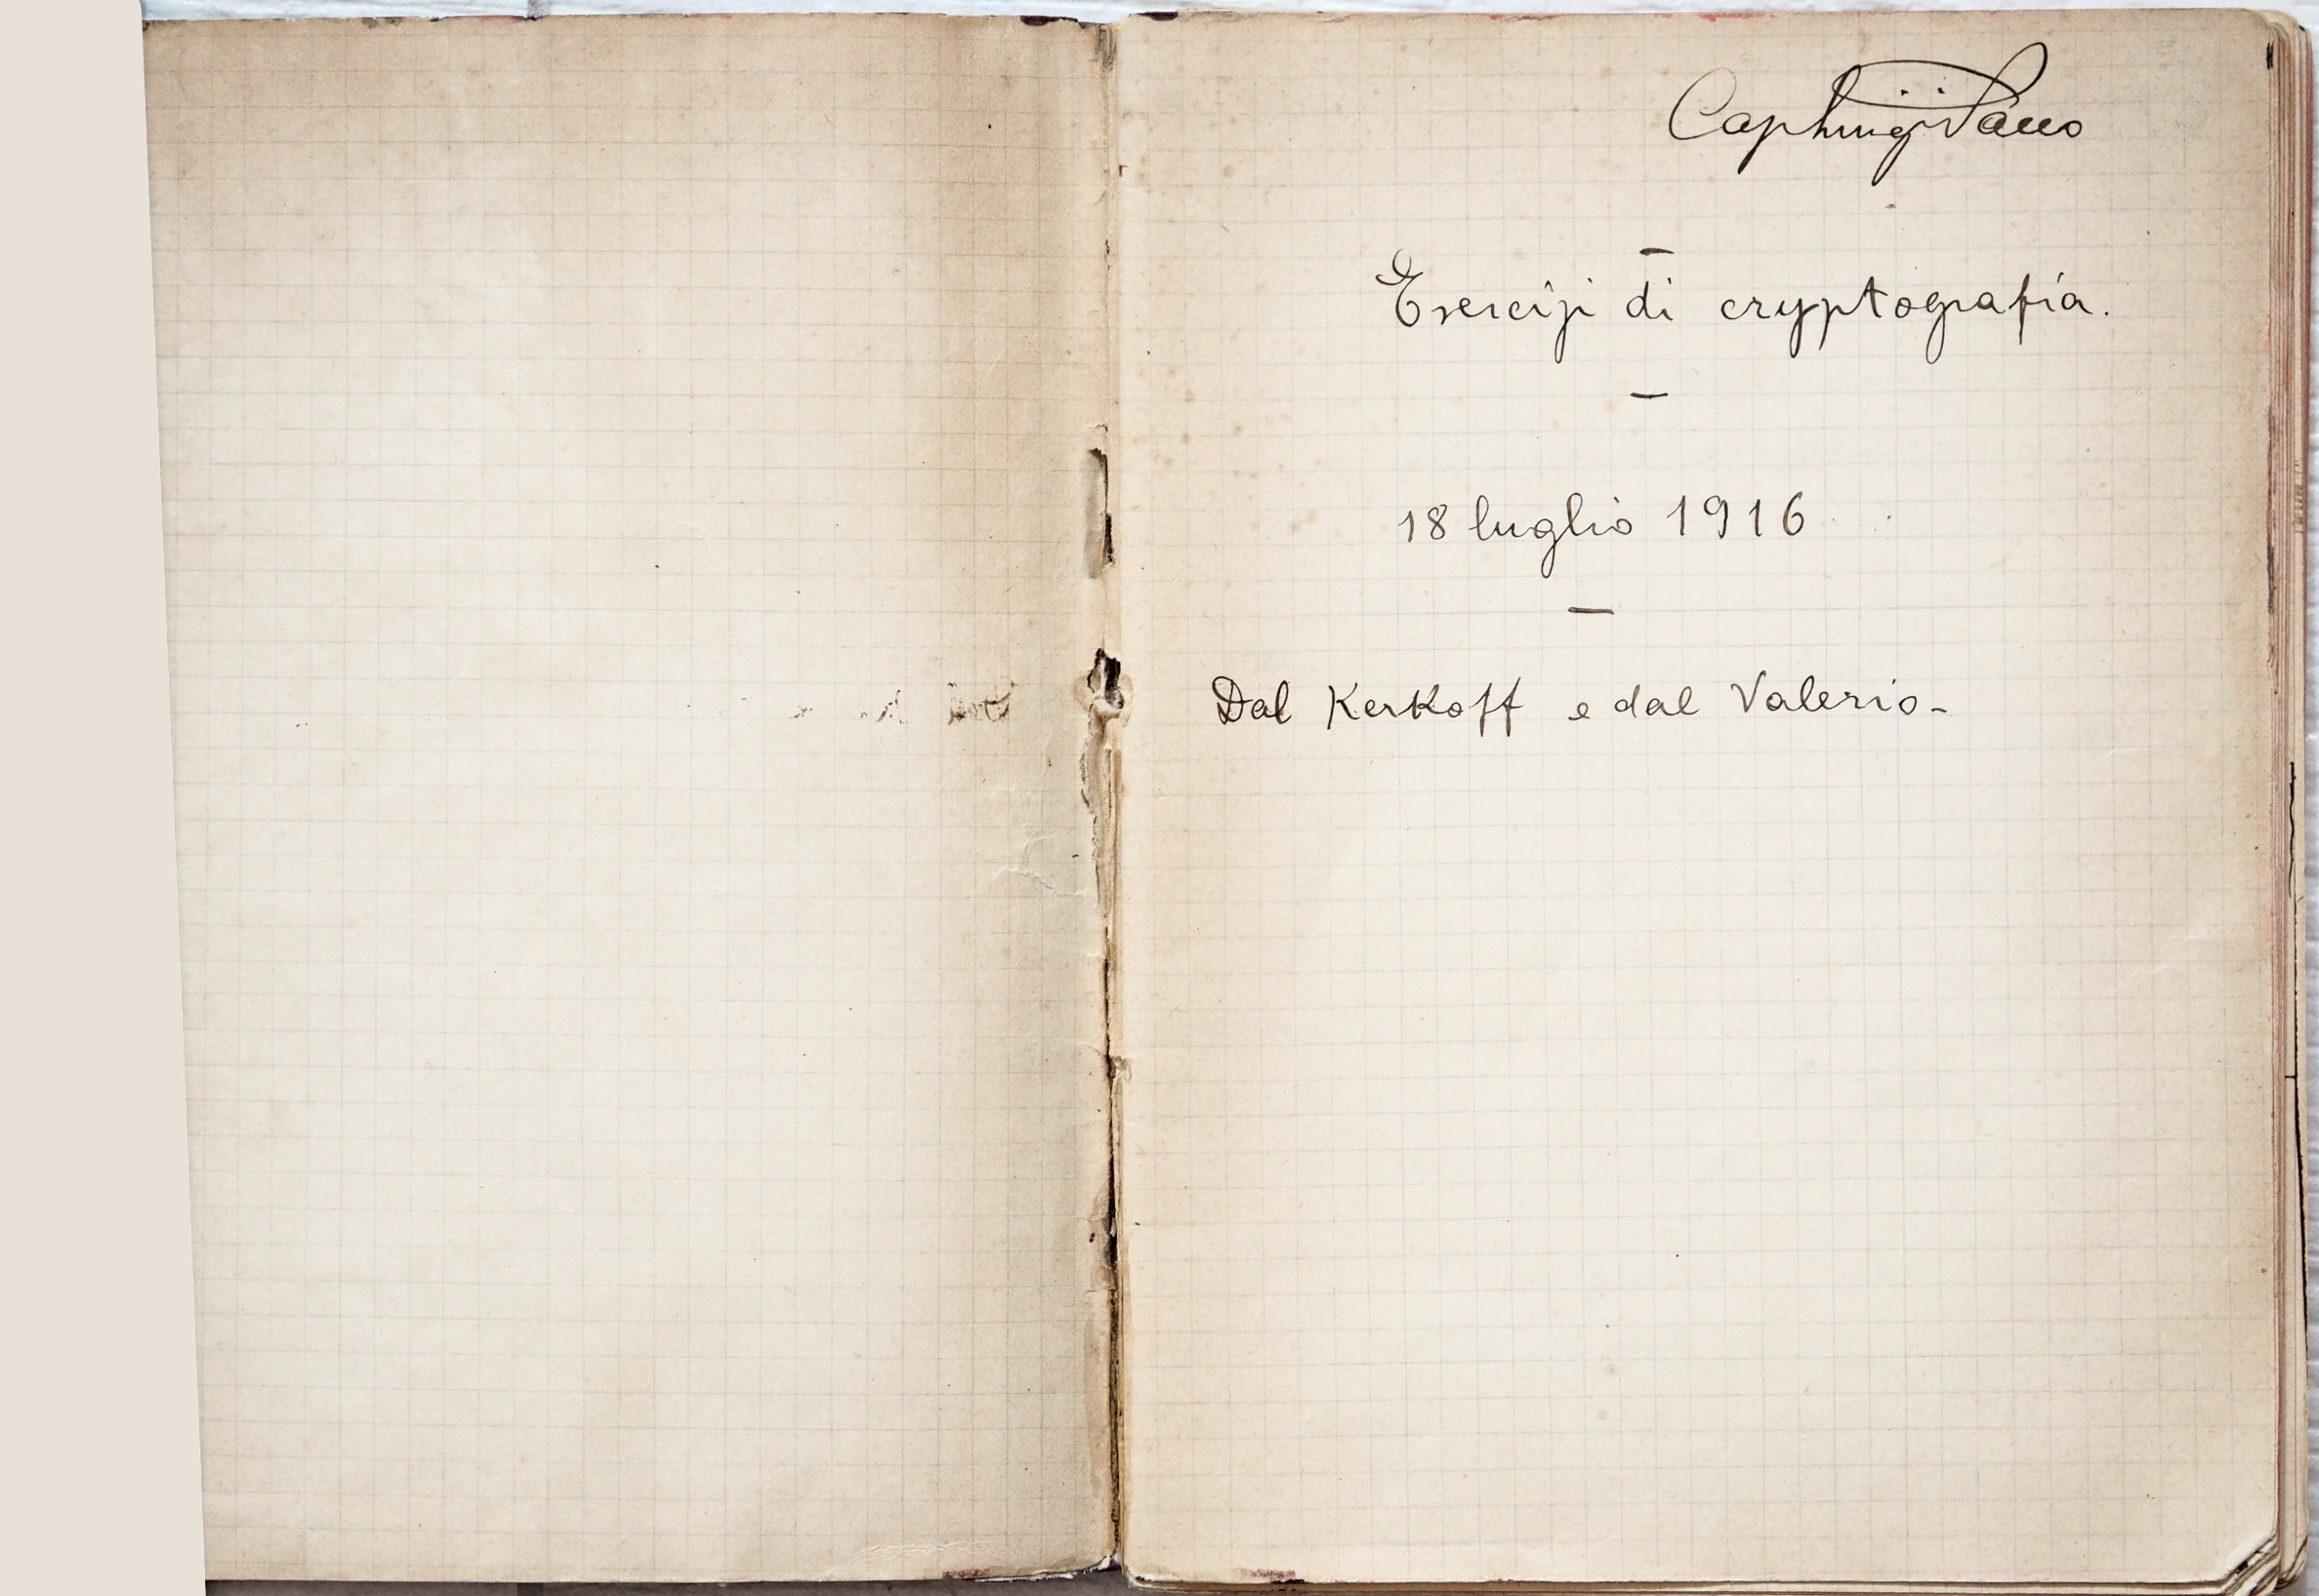 Cap Luigi Sacco
Esercizi di cryptografia.
18 luglio 1916
Dal Kerkoff e dal Valerio-